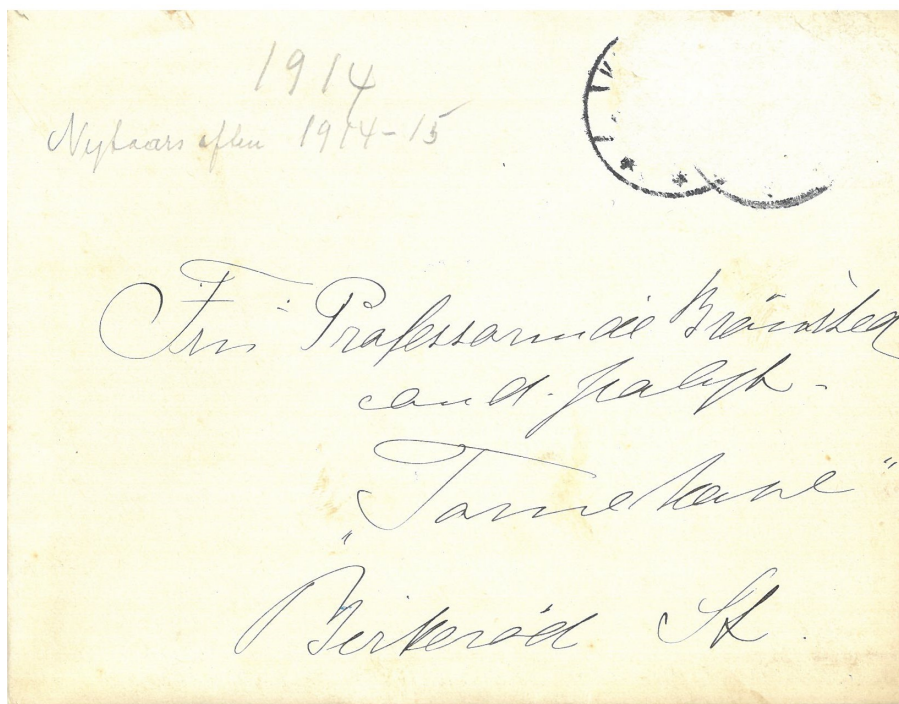 1914
Nytaarsaften 1914-15
Fru Professorinde Brönsted
cand. polyt.
"Tornehave"
Birkeröd St.